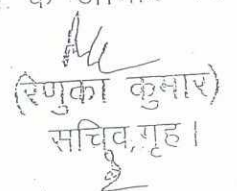 (रेणुका कुमार)
सचिव, गृह।